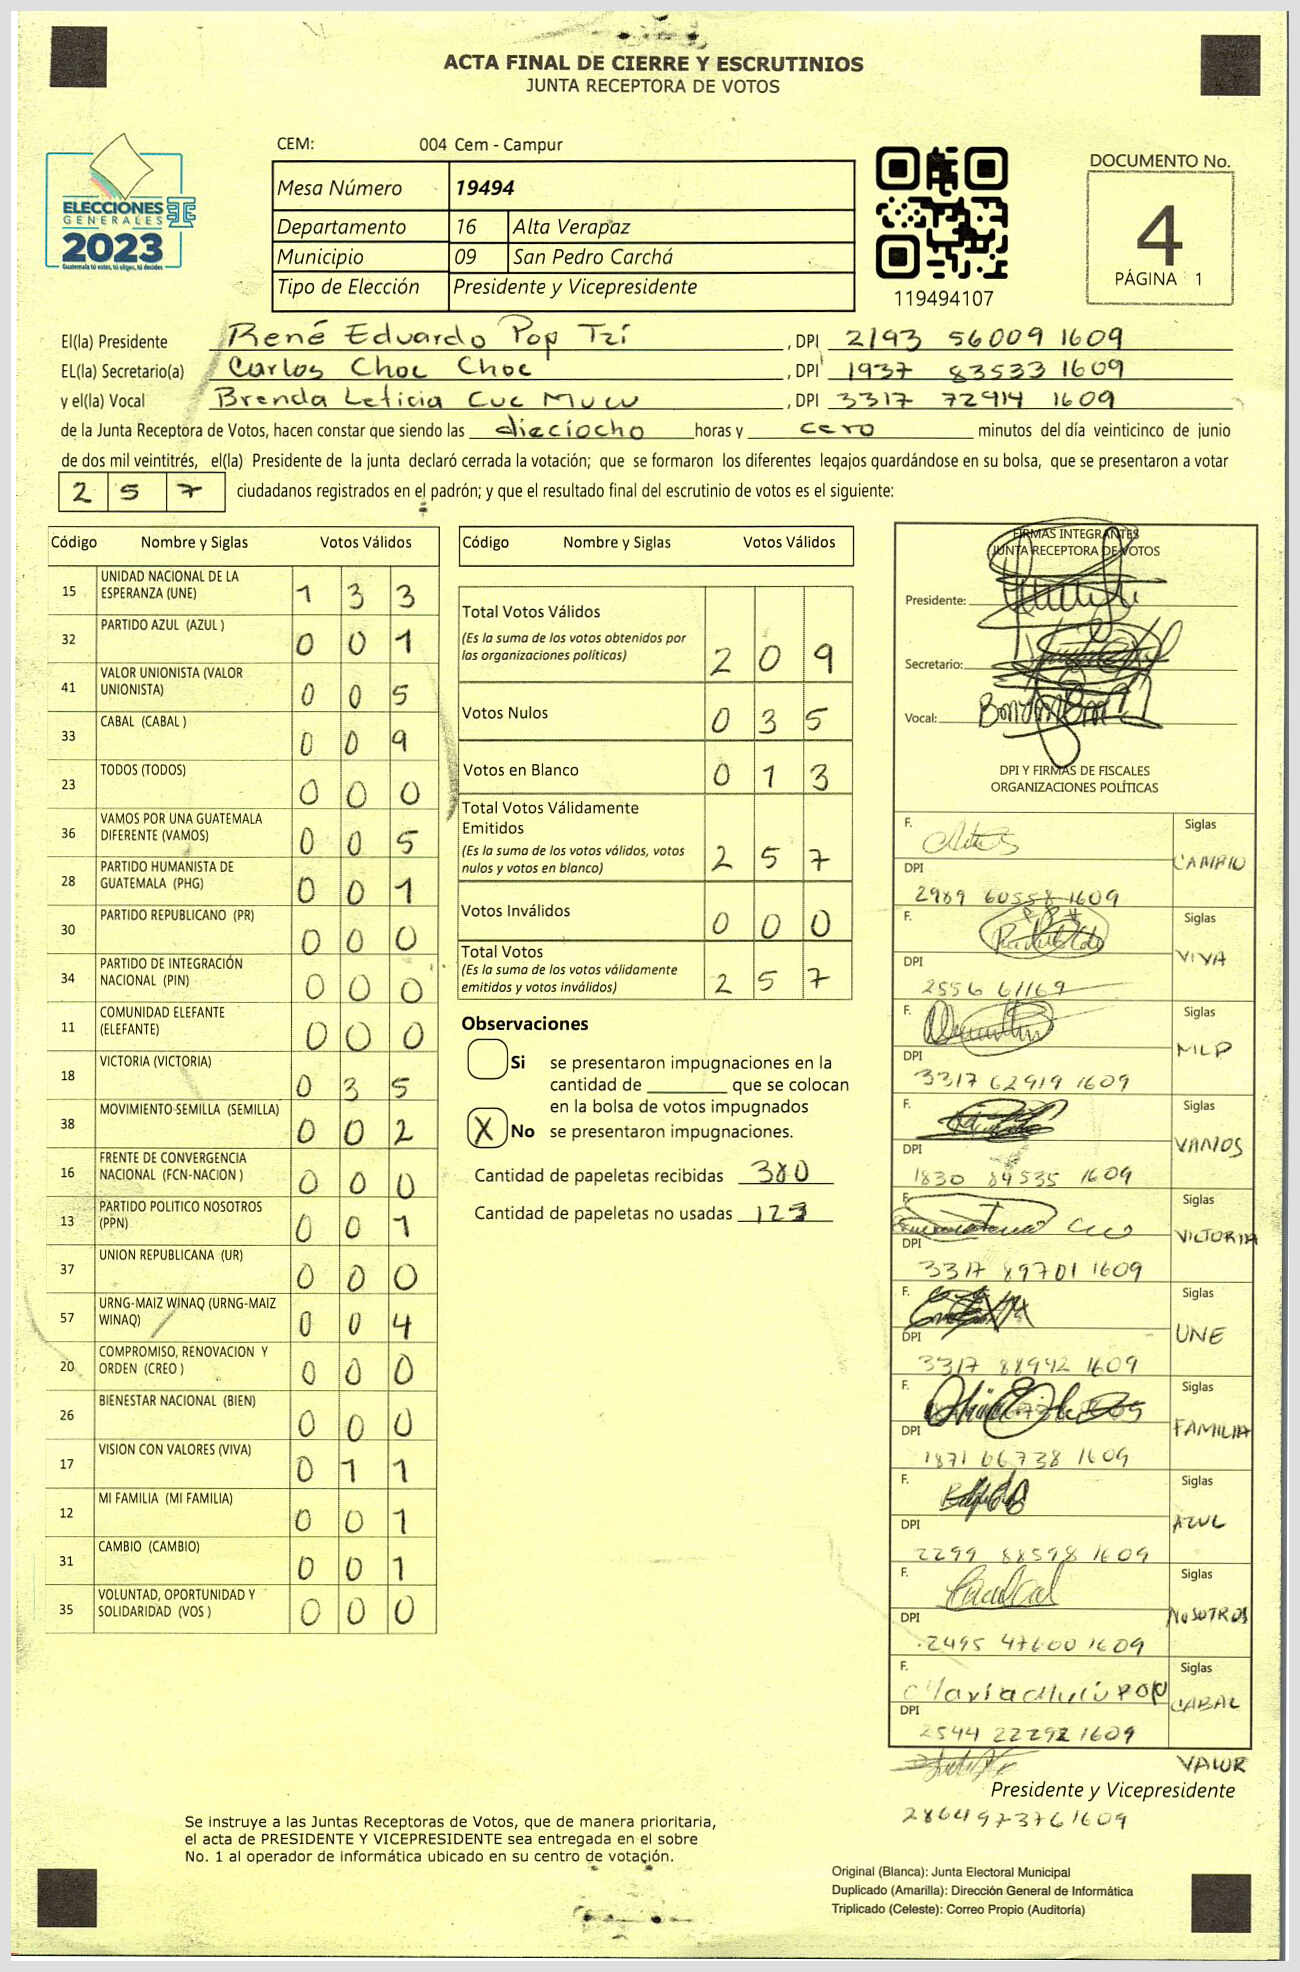 ACTA FINAL DE CIERRE Y ESCRUTINIOS
JUNTA RECEPTORA DE VOTOS
CEM: 004 Cem - Campur
ELECCIONES
GENERALES
2023
Guatemala tú votas, tú eliges, tú decides
Mesa Número 19494
Departamento 16 Alta Verapaz
Municipio 09 San Pedro Carchá
Tipo de Elección Presidente y Vicepresidente
119494107
DOCUMENTO No.
4
PÁGINA 1
El(la) Presidente René Eduardo Pop Tzí , DPI 2193 56009 1609
EL(la) Secretario(a) Carlos Choc Choc , DPI 1937 83533 1609
y el(la) Vocal Brenda Leticia Cuc Mucu , DPI 3317 72914 1609
de la Junta Receptora de Votos, hacen constar que siendo las dieciocho horas y cero minutos del día veinticinco de junio
de dos mil veintitrés, el(la) Presidente de la junta declaró cerrada la votación; que se formaron los diferentes legajos guardándose en su bolsa, que se presentaron a votar
2 5 7 ciudadanos registrados en el padrón; y que el resultado final del escrutinio de votos es el siguiente:
Código Nombre y Siglas Votos Válidos
15 UNIDAD NACIONAL DE LA ESPERANZA (UNE) 1 3 3
32 PARTIDO AZUL (AZUL ) 0 0 1
41 VALOR UNIONISTA (VALOR UNIONISTA) 0 0 5
33 CABAL (CABAL ) 0 0 9
23 TODOS (TODOS) 0 0 0
36 VAMOS POR UNA GUATEMALA DIFERENTE (VAMOS) 0 0 5
28 PARTIDO HUMANISTA DE GUATEMALA (PHG) 0 0 1
30 PARTIDO REPUBLICANO (PR) 0 0 0
34 PARTIDO DE INTEGRACIÓN NACIONAL (PIN) 0 0 0
11 COMUNIDAD ELEFANTE (ELEFANTE) 0 0 0
18 VICTORIA (VICTORIA) 0 3 5
38 MOVIMIENTO SEMILLA (SEMILLA) 0 0 2
16 FRENTE DE CONVERGENCIA NACIONAL (FCN-NACION ) 0 0 0
13 PARTIDO POLITICO NOSOTROS (PPN) 0 0 1
37 UNION REPUBLICANA (UR) 0 0 0
57 URNG-MAIZ WINAQ (URNG-MAIZ WINAQ) 0 0 4
20 COMPROMISO, RENOVACION Y ORDEN (CREO ) 0 0 0
26 BIENESTAR NACIONAL (BIEN) 0 0 0
17 VISION CON VALORES (VIVA) 0 1 1
12 MI FAMILIA (MI FAMILIA) 0 0 1
31 CAMBIO (CAMBIO) 0 0 1
35 VOLUNTAD, OPORTUNIDAD Y SOLIDARIDAD (VOS ) 0 0 0
Código Nombre y Siglas Votos Válidos
Total Votos Válidos
(Es la suma de los votos obtenidos por
las organizaciones políticas) 2 0 9
Votos Nulos 0 3 5
Votos en Blanco 0 1 3
Total Votos Válidamente
Emitidos
(Es la suma de los votos válidos, votos
nulos y votos en blanco) 2 5 7
Votos Inválidos 0 0 0
Total Votos
(Es la suma de los votos válidamente
emitidos y votos inválidos) 2 5 7
Observaciones
Si se presentaron impugnaciones en la
cantidad de ________ que se colocan
en la bolsa de votos impugnados
X No se presentaron impugnaciones.
Cantidad de papeletas recibidas 380
Cantidad de papeletas no usadas 123
FIRMAS INTEGRANTES
JUNTA RECEPTORA DE VOTOS
Presidente:
Secretario:
Vocal:
DPI Y FIRMAS DE FISCALES
ORGANIZACIONES POLÍTICAS
F. Siglas
CAMBIO
DPI
2989 60558 1609
F. Siglas
VIVA
DPI
2556 61169
F. Siglas
MLP
DPI
3317 62919 1609
F. Siglas
VAMOS
DPI
1830 84535 1609
F. Siglas
VICTORIA
DPI
3317 89701 1609
F. Siglas
UNE
DPI
3317 88942 1609
F. Siglas
FAMILIA
DPI
1871 66738 1609
F. Siglas
AZUL
DPI
2299 88598 1609
F. Siglas
NOSOTROS
DPI
2495 47600 1609
F. Siglas
CABAL
DPI
2544 22292 1609
VALOR
Presidente y Vicepresidente
2864973761609
Se instruye a las Juntas Receptoras de Votos, que de manera prioritaria,
el acta de PRESIDENTE Y VICEPRESIDENTE sea entregada en el sobre
No. 1 al operador de informática ubicado en su centro de votación.
Original (Blanca): Junta Electoral Municipal
Duplicado (Amarilla): Dirección General de Informática
Triplicado (Celeste): Correo Propio (Auditoría)